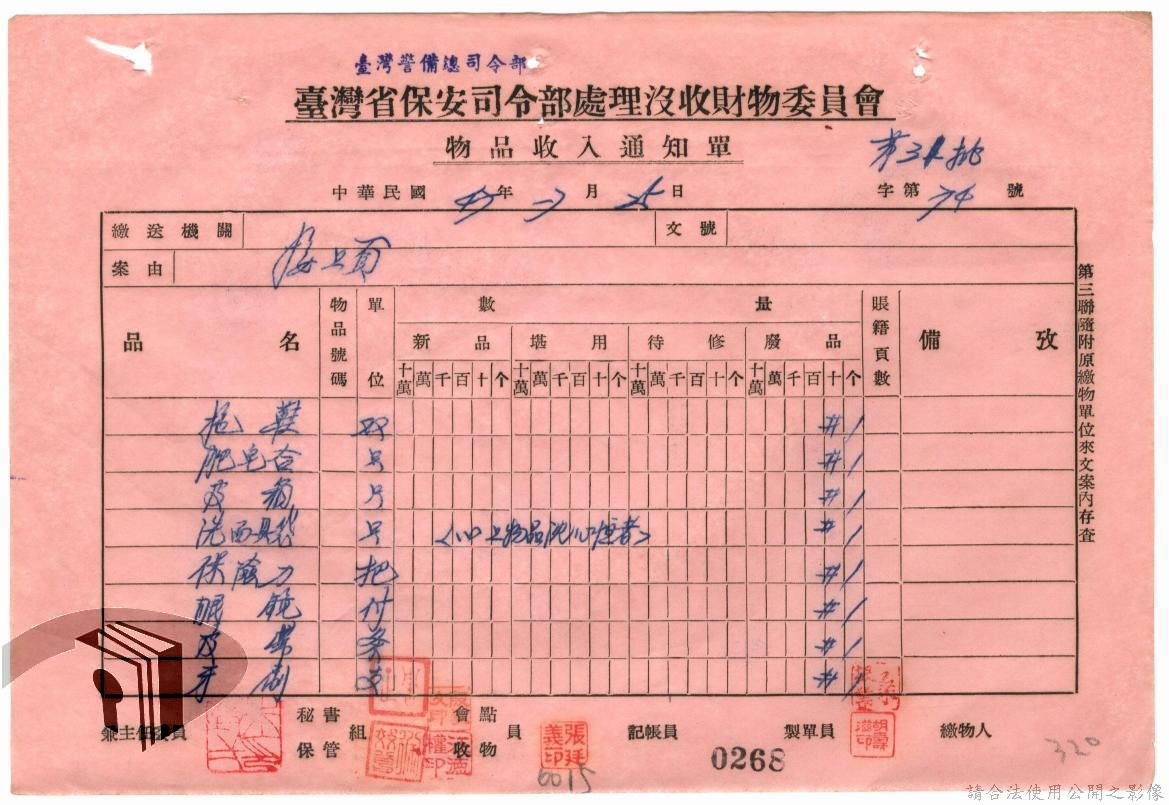 臺灣警備總司令部
臺灣省保安司令部處理沒收財物委員會
物品收入通知單
中華民國 年 月 日 字第 74 號
繳送機關 文號
案由 接上頁
品名 物品號碼 單位 數量 賬籍頁數 備攷
新品 堪用 待修 廢品
十萬 萬 千 百 十 个 十萬 萬 千 百 十 个 十萬 萬 千 百 十 个 十萬 萬 千 百 十 个
拖鞋 双 # 1
肥皂合 只 # 1
皮箱 只 # 1
洗面具袋 只 # 1
保險刀 把 # 1
眼鏡 付 # 1
皮帶 条 # 1
# 1
第三聯隨附原繳物單位來文案內存查
兼主任委員 秘書 保管 組 會點 收物 員 記帳員 製單員 繳物人
張廷義印
0268
6015
320
請合法使用公開之影像